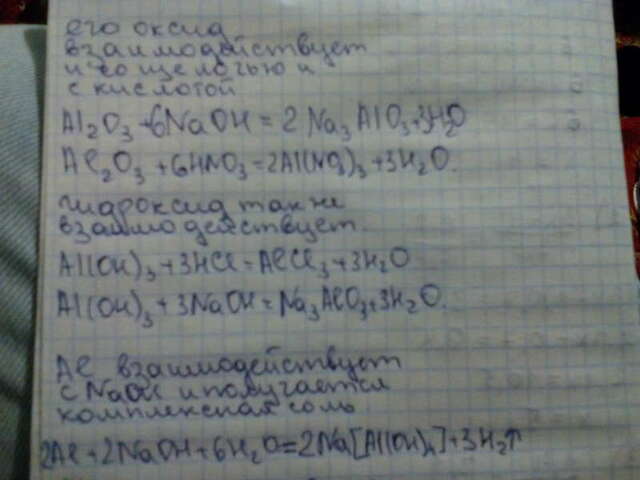 его оксид
взаимодействует
и со щелочью и
с кислотой
Al₂O₃ + 6NaOH = 2Na₃AlO₃ + 3H₂O
Al₂O₃ + 6HNO₃ = 2Al(NO₃)₃ + 3H₂O.
гидроксид так же
взаимодействует
Al(OH)₃ + 3HCl = AlCl₃ + 3H₂O
Al(OH)₃ + 3NaOH = Na₃AlO₃ + 3H₂O.
Al взаимодействует
с NaOH и получается
комплексная соль
2Al + 2NaOH + 6H₂O = 2Na[Al(OH)₄] + 3H₂↑